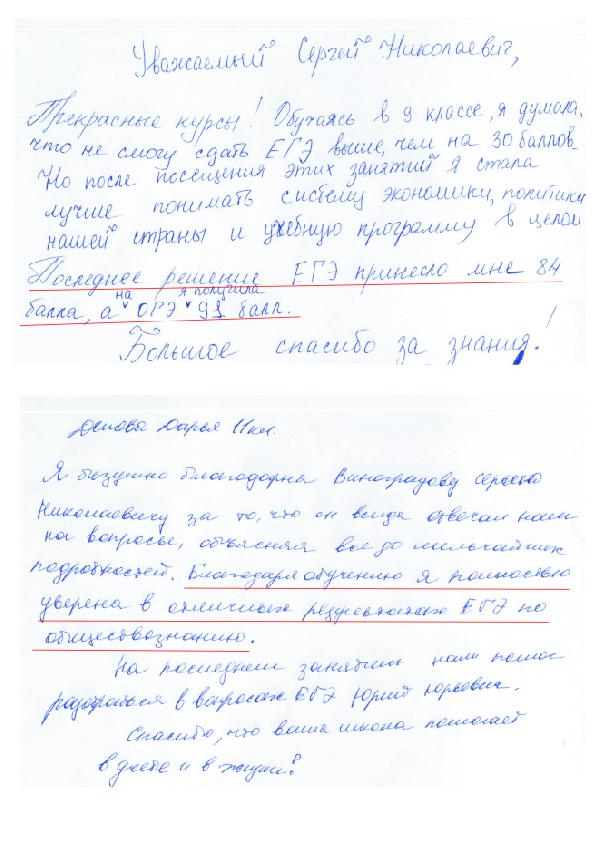 Уважаемый Сергей Николаевич,
Прекрасные курсы! Обучаясь в 9 классе, я думала,
что не смогу сдать ЕГЭ выше, чем на 30 баллов.
Но после посещения этих занятий я стала
лучше понимать систему экономики, политики
нашей страны и учебную программу в целом
Последнее решение ЕГЭ принесло мне 84
балла, а на ОРЭ я получила 91 балл.
Большое спасибо за знания!
Дарья 11 кл.
Я безумно благодарна Виноградову Сергею
Николаевичу за то, что он всегда отвечал нам
на вопросы, объясняя все до мельчайших
подробностей. Благодаря обучению я полностью
уверена в отличных результатах ЕГЭ по
обществознанию.
На последнем занятии нам помог
разобраться в вопросах ЕГЭ Юрий Юрьевич.
Спасибо, что ваша школа помогает
в учебе и в жизни!